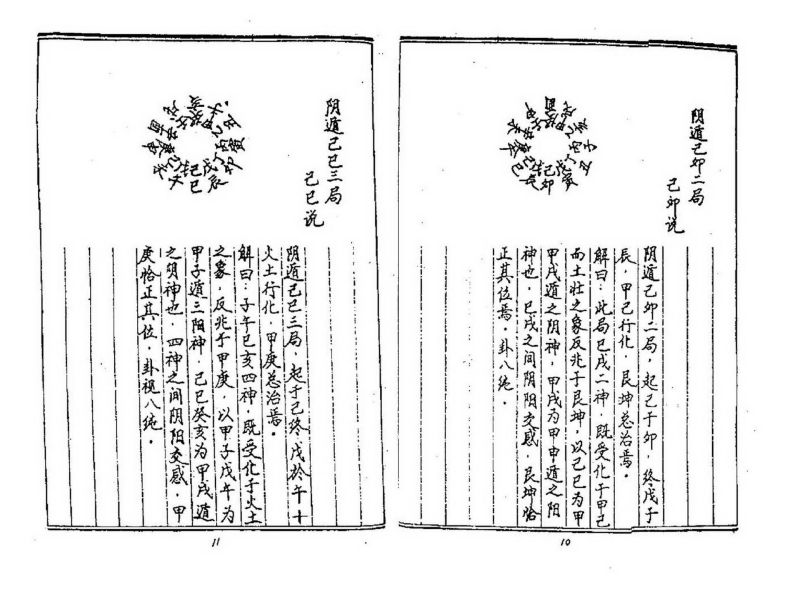 阴遁己卯二局
己卯说
阴遁己卯二局，起己于卯，终戊于
辰，甲己行化，艮坤总治焉。
解曰：此局巳戌二神，既受化于甲己
而土壮之象反兆于艮坤，以己巳为甲
甲戌遁之阴神，甲戌为甲申遁之阳
神也，巳戌之间阴阳交感，艮坤恰
正其位焉，卦八纯。
10
阴遁己巳三局
己巳说
阴遁己巳三局，起于己终戊於午十
火土行化，甲庚总治焉。
解曰：子午巳亥四神，既受化于火土
之象，反兆于甲庚，以甲子戊午为
甲子遁三阳神，己巳癸亥为甲戌遁
之阴神也，四神之间阴阳交感，甲
庚恰正其位，卦视八纯。
11